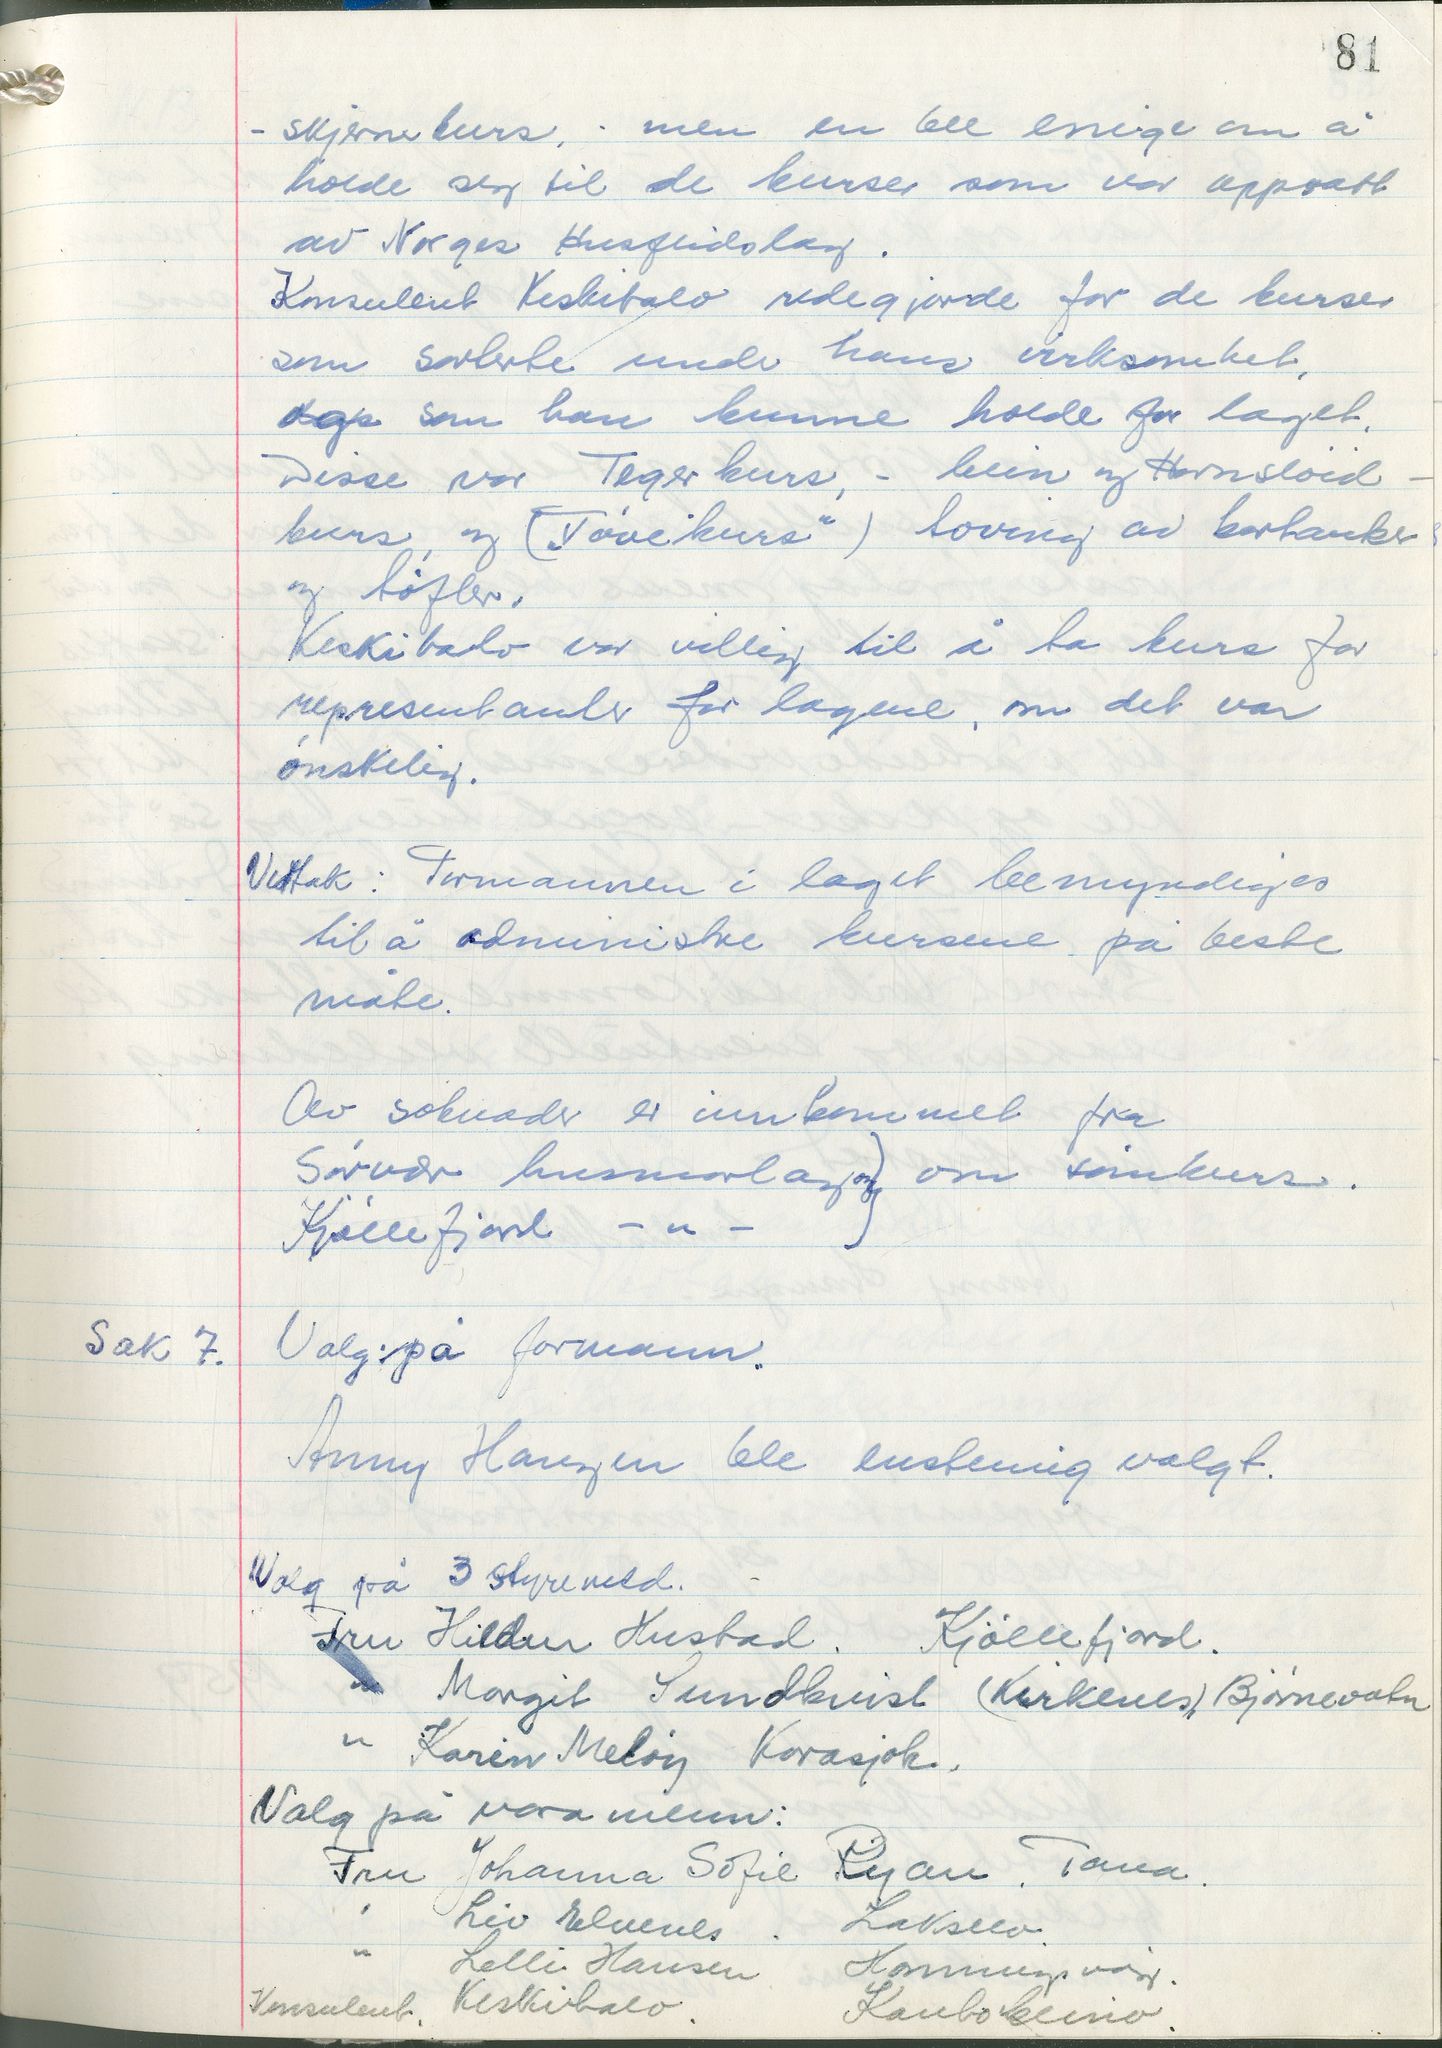 81
- skjermekurs, - men en ble enige om å
holde seg til de kurser som var oppsatt
av Norges Husflidslag.
Konsulent Keskitalo redegjorde for de kurser
som sorterte under hans virksomhet,
som han kunne holde for laget.
Disse var Tegerkurs, - bein og Hornslöid -
kurs og („Tövekurs") toving av
og töfler.
Keskitalo var villig til å ta kurs for
representanter for lagene, om det var
önskelig.
Vedtak: Formannen i laget bemyndiges
til å administre kursene på beste
måte.
Av söknader er innkommet fra
Sörvær husmorlag og) om sömkurs.
Kjöllefjord - " - )
Sak 7. Valg: på formann.
Anny Haugen ble enstemig valgt.
Valg på 3 styremed.
Fru Hildur Hustad. Kjöllefjord.
" Margit Sundkvist (Kirkenes), Björnevatn
" Karin Melöy Karasjok.
Valg på varamenn:
Fru Johanna Sofie Ryan. Tana.
" Liv Elvenes. Lakselv.
" Lelli Hansen Honningsvåg.
Konsulent. Keskitalo. Kautokeino.